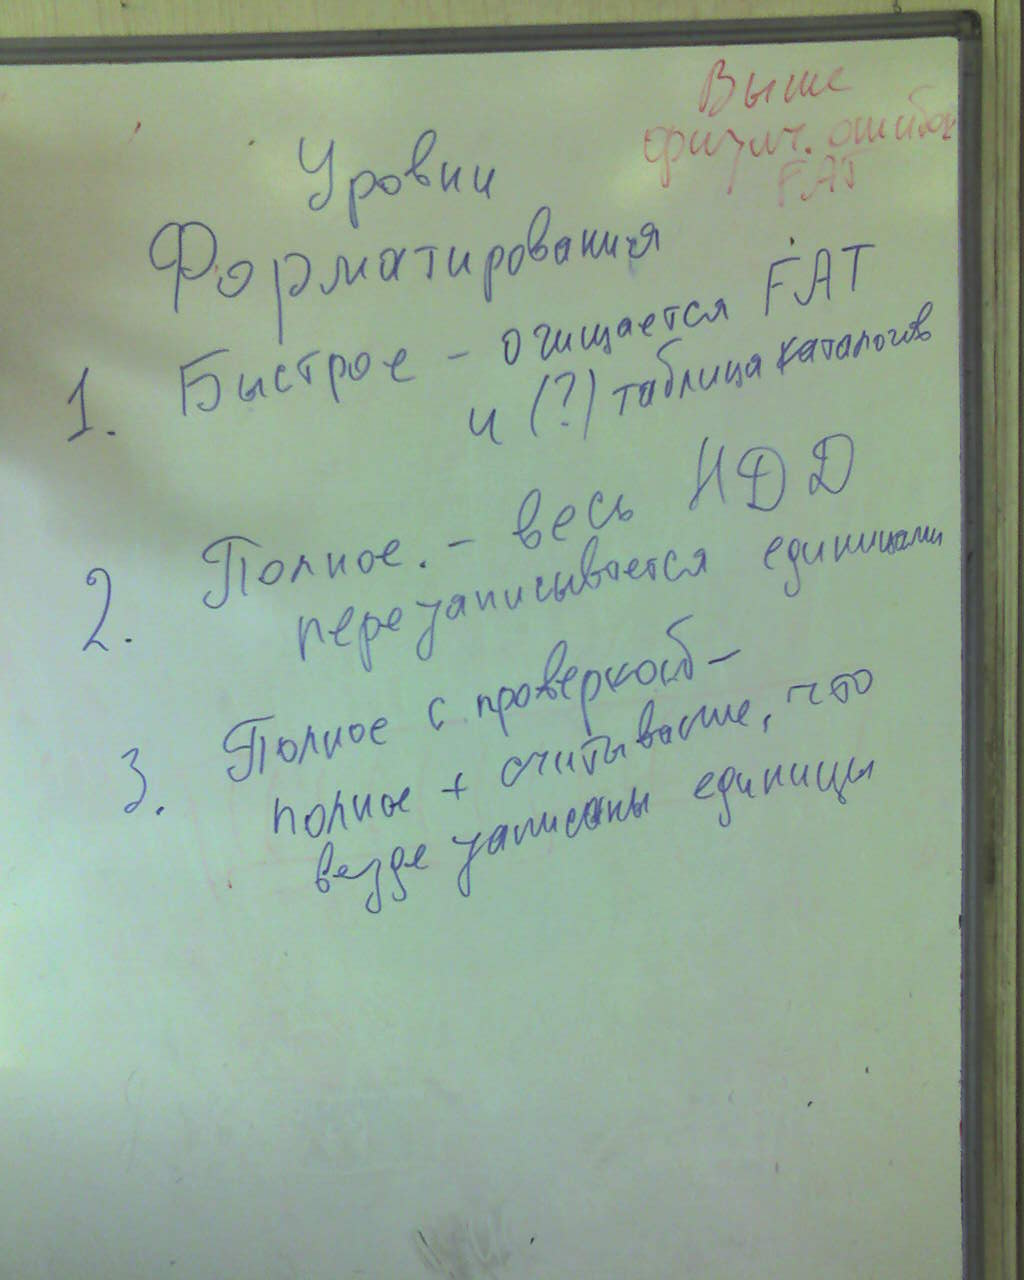 Выше
физич. ошибок
FAT
Уровни
Форматирования
1. Быстрое - очищается FAT
и (?) таблица каталогов
2. Полное. - весь HDD
перезаписывается единицами
3. Полное с проверкой -
полное + считывание, что
везде записаны единицы